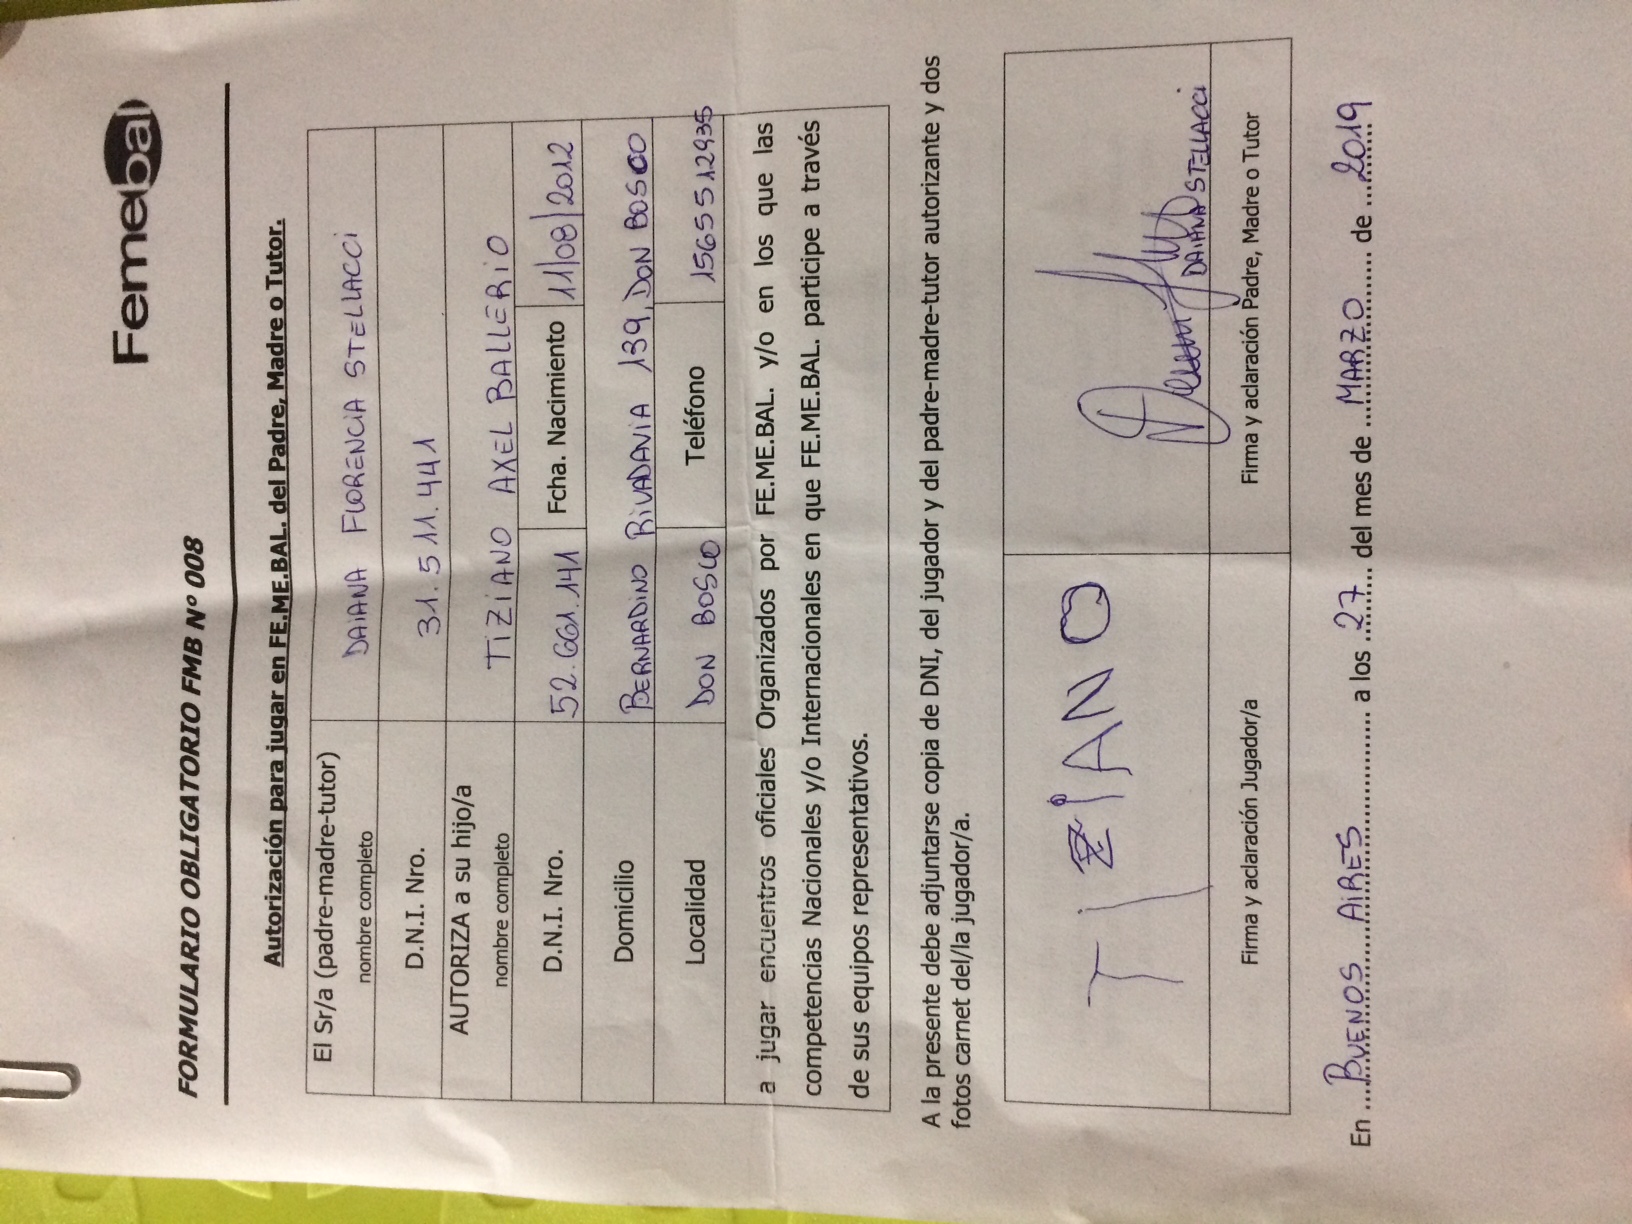 Femebal
FORMULARIO OBLIGATORIO FMB Nº 008
Autorización para jugar en FE.ME.BAL. del Padre, Madre o Tutor.
El Sr/a (padre-madre-tutor)
nombre completo
DAIANA FLORENCIA STELLACCI
D.N.I. Nro.
31.511.441
AUTORIZA a su hijo/a
nombre completo
TIZIANO AXEL BALLERIO
D.N.I. Nro.
52.661.141
Fcha. Nacimiento
11/08/2012
Domicilio
BERNARDINO RIVADAVIA 139, DON BOSCO
Localidad
DON BOSCO
Teléfono
1565512935
a jugar encuentros oficiales Organizados por FE.ME.BAL. y/o en los que las
competencias Nacionales y/o Internacionales en que FE.ME.BAL. participe a través
de sus equipos representativos.
A la presente debe adjuntarse copia de DNI, del jugador y del padre-madre-tutor autorizante y dos
fotos carnet del/la jugador/a.
TIZIANO
DAIANA STELLACCI
Firma y aclaración Jugador/a
Firma y aclaración Padre, Madre o Tutor
En BUENOS AIRES a los 27 del mes de MARZO de 2019